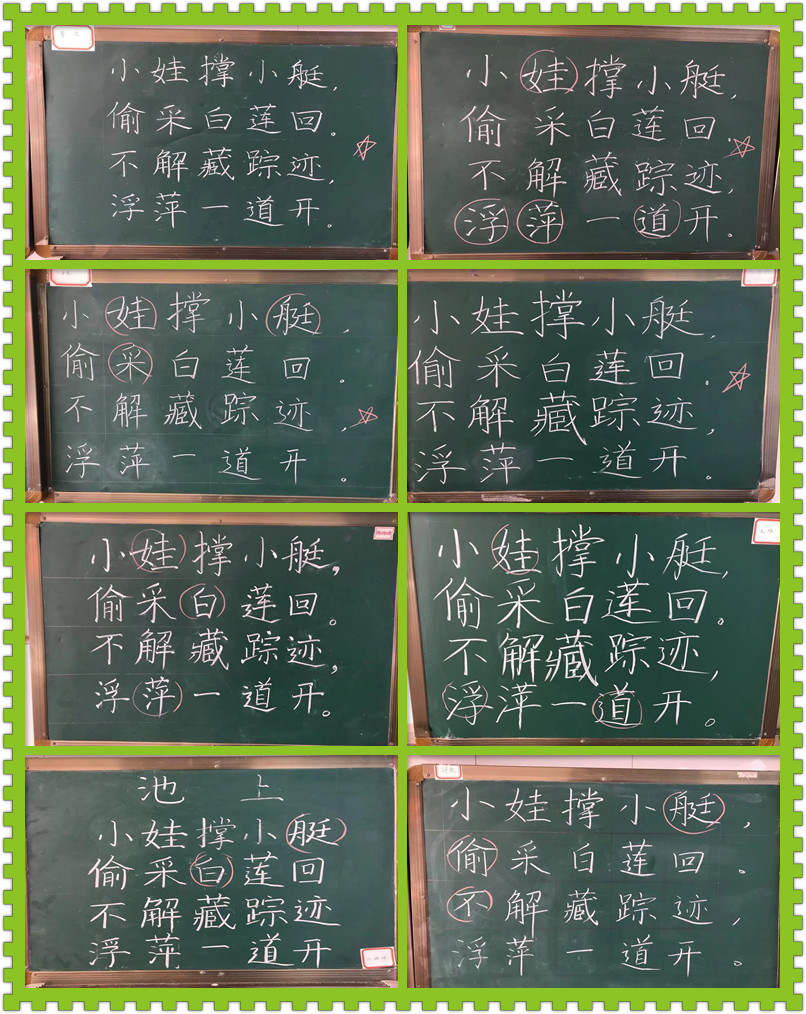 小娃撑小艇,
偷采白莲回。
不解藏踪迹,
浮萍一道开。
小娃撑小艇,
偷采白莲回.
不解藏踪迹,
浮萍一道开.
小娃撑小艇,
偷采白莲回.
不解藏踪迹,
浮萍一道开。
小娃撑小艇,
偷采白莲回.
不解藏踪迹,
浮萍一道开。
小娃撑小艇,
偷采白莲回。
不解藏踪迹,
浮萍一道开。
小娃撑小艇,
偷采白莲回。
不解藏踪迹,
浮萍一道开。
池上
小娃撑小艇
偷采白莲回
不解藏踪迹
浮萍一道开
小娃撑小艇,
偷采白莲回。
不解藏踪迹,
浮萍一道开。